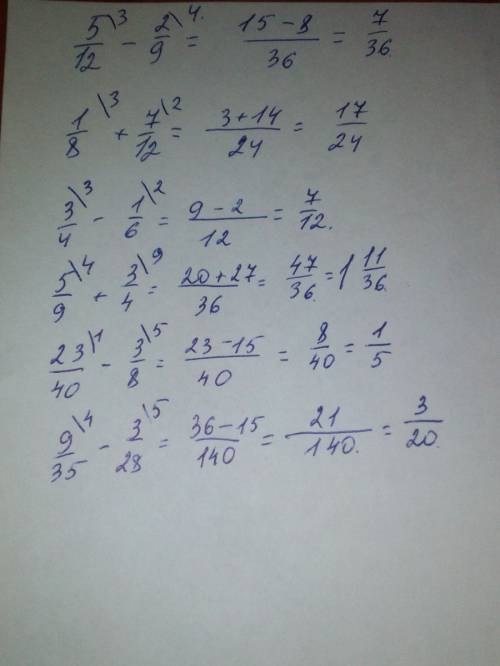 5/12\3 − 2/9\4. = (15 − 8)/36 = 7/36.
1/8\3 + 7/12\2 = (3 + 14)/24 = 17/24
3/4\3 − 1/6\2 = (9 − 2)/12 = 7/12.
5/9\4 + 3/4\9 = (20 + 27)/36 = 47/36. = 1 11/36.
23/40\1 − 3/8\5 = (23 − 15)/40 = 8/40 = 1/5
9/35\4 − 3/28\5 = (36 − 15)/140 = 21/140. = 3/20.